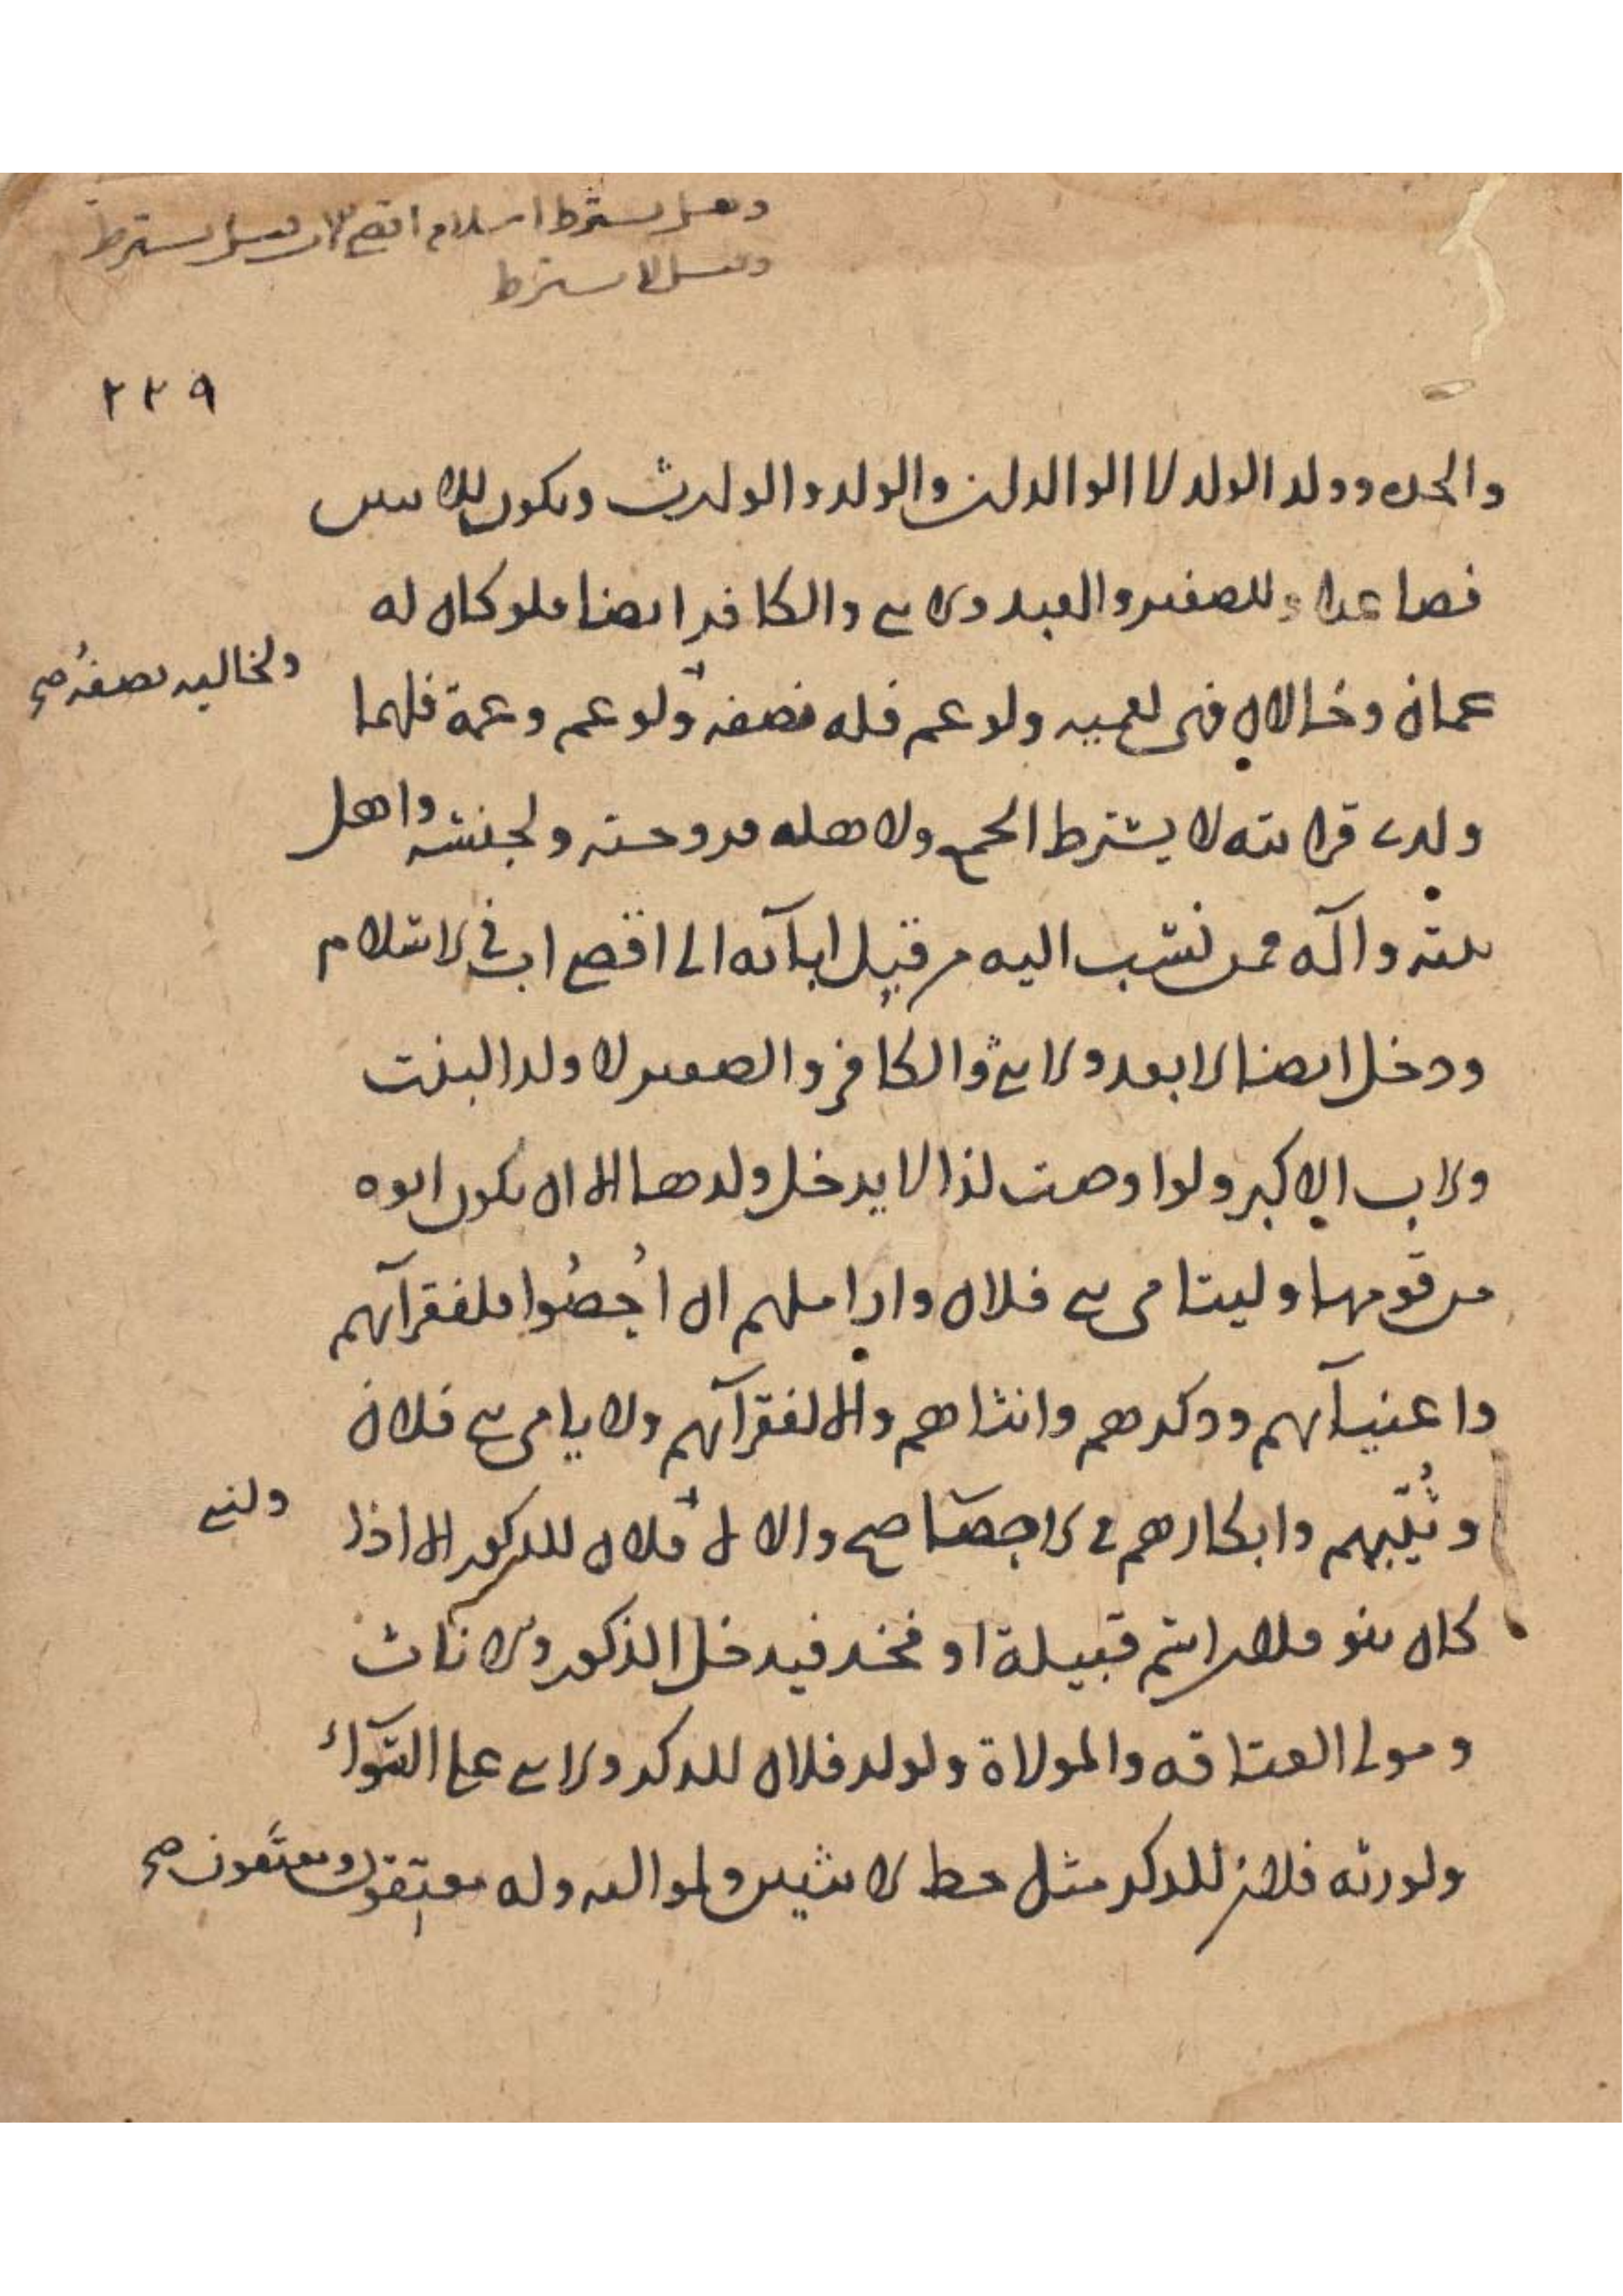 وقيل يشترط اسلام اقصى الاب وقيل يشترط
وقيل لا يشترط
٢٢٩
والجدة وولد الولد لا الوالدان والولد والوالدين ويكون للاثنين
فصاعدا وللصغير والعبد والانثى والكافر ايضا فلو كان له
عمان وخالان فهي لعميه ولو عم فله نصفه ولو عم وعمة فلهما
ولخاليه نصفه صح
ولذي قرابته لا يشترط الجمع ولاهله فزوجته ولجنسه واهل
بيته وآله فمن نسب اليه من قبل ابائه الى اقصى اب في الاسلام
ودخل ايضا الابعد والانثى والكافر والصغير لا ولد البنت
والاب الاكبر ولو اوصت لذا لا يدخل ولدها الا ان يكون ابوه
من قومها وليتامى بني فلان واراملهم ان احصوا فلفقرآئهم
واغنيآئهم وذكرهم وانثاهم والا لفقرآئهم ولايامى بني فلان
وثيبهم وابكارهم في الاحصا صح والا لا فلان للذكور الا اذا
ولبني
كان بنو فلان اسم قبيلة او فخذ فيدخل الذكور والاناث
ومولى العتاقه والمولاة ولولد فلان للذكر والانثى على السوآء
ولورثه فلان للذكر مثل حظ الانثيين ولمواليه وله معتقون ومعتقون صح